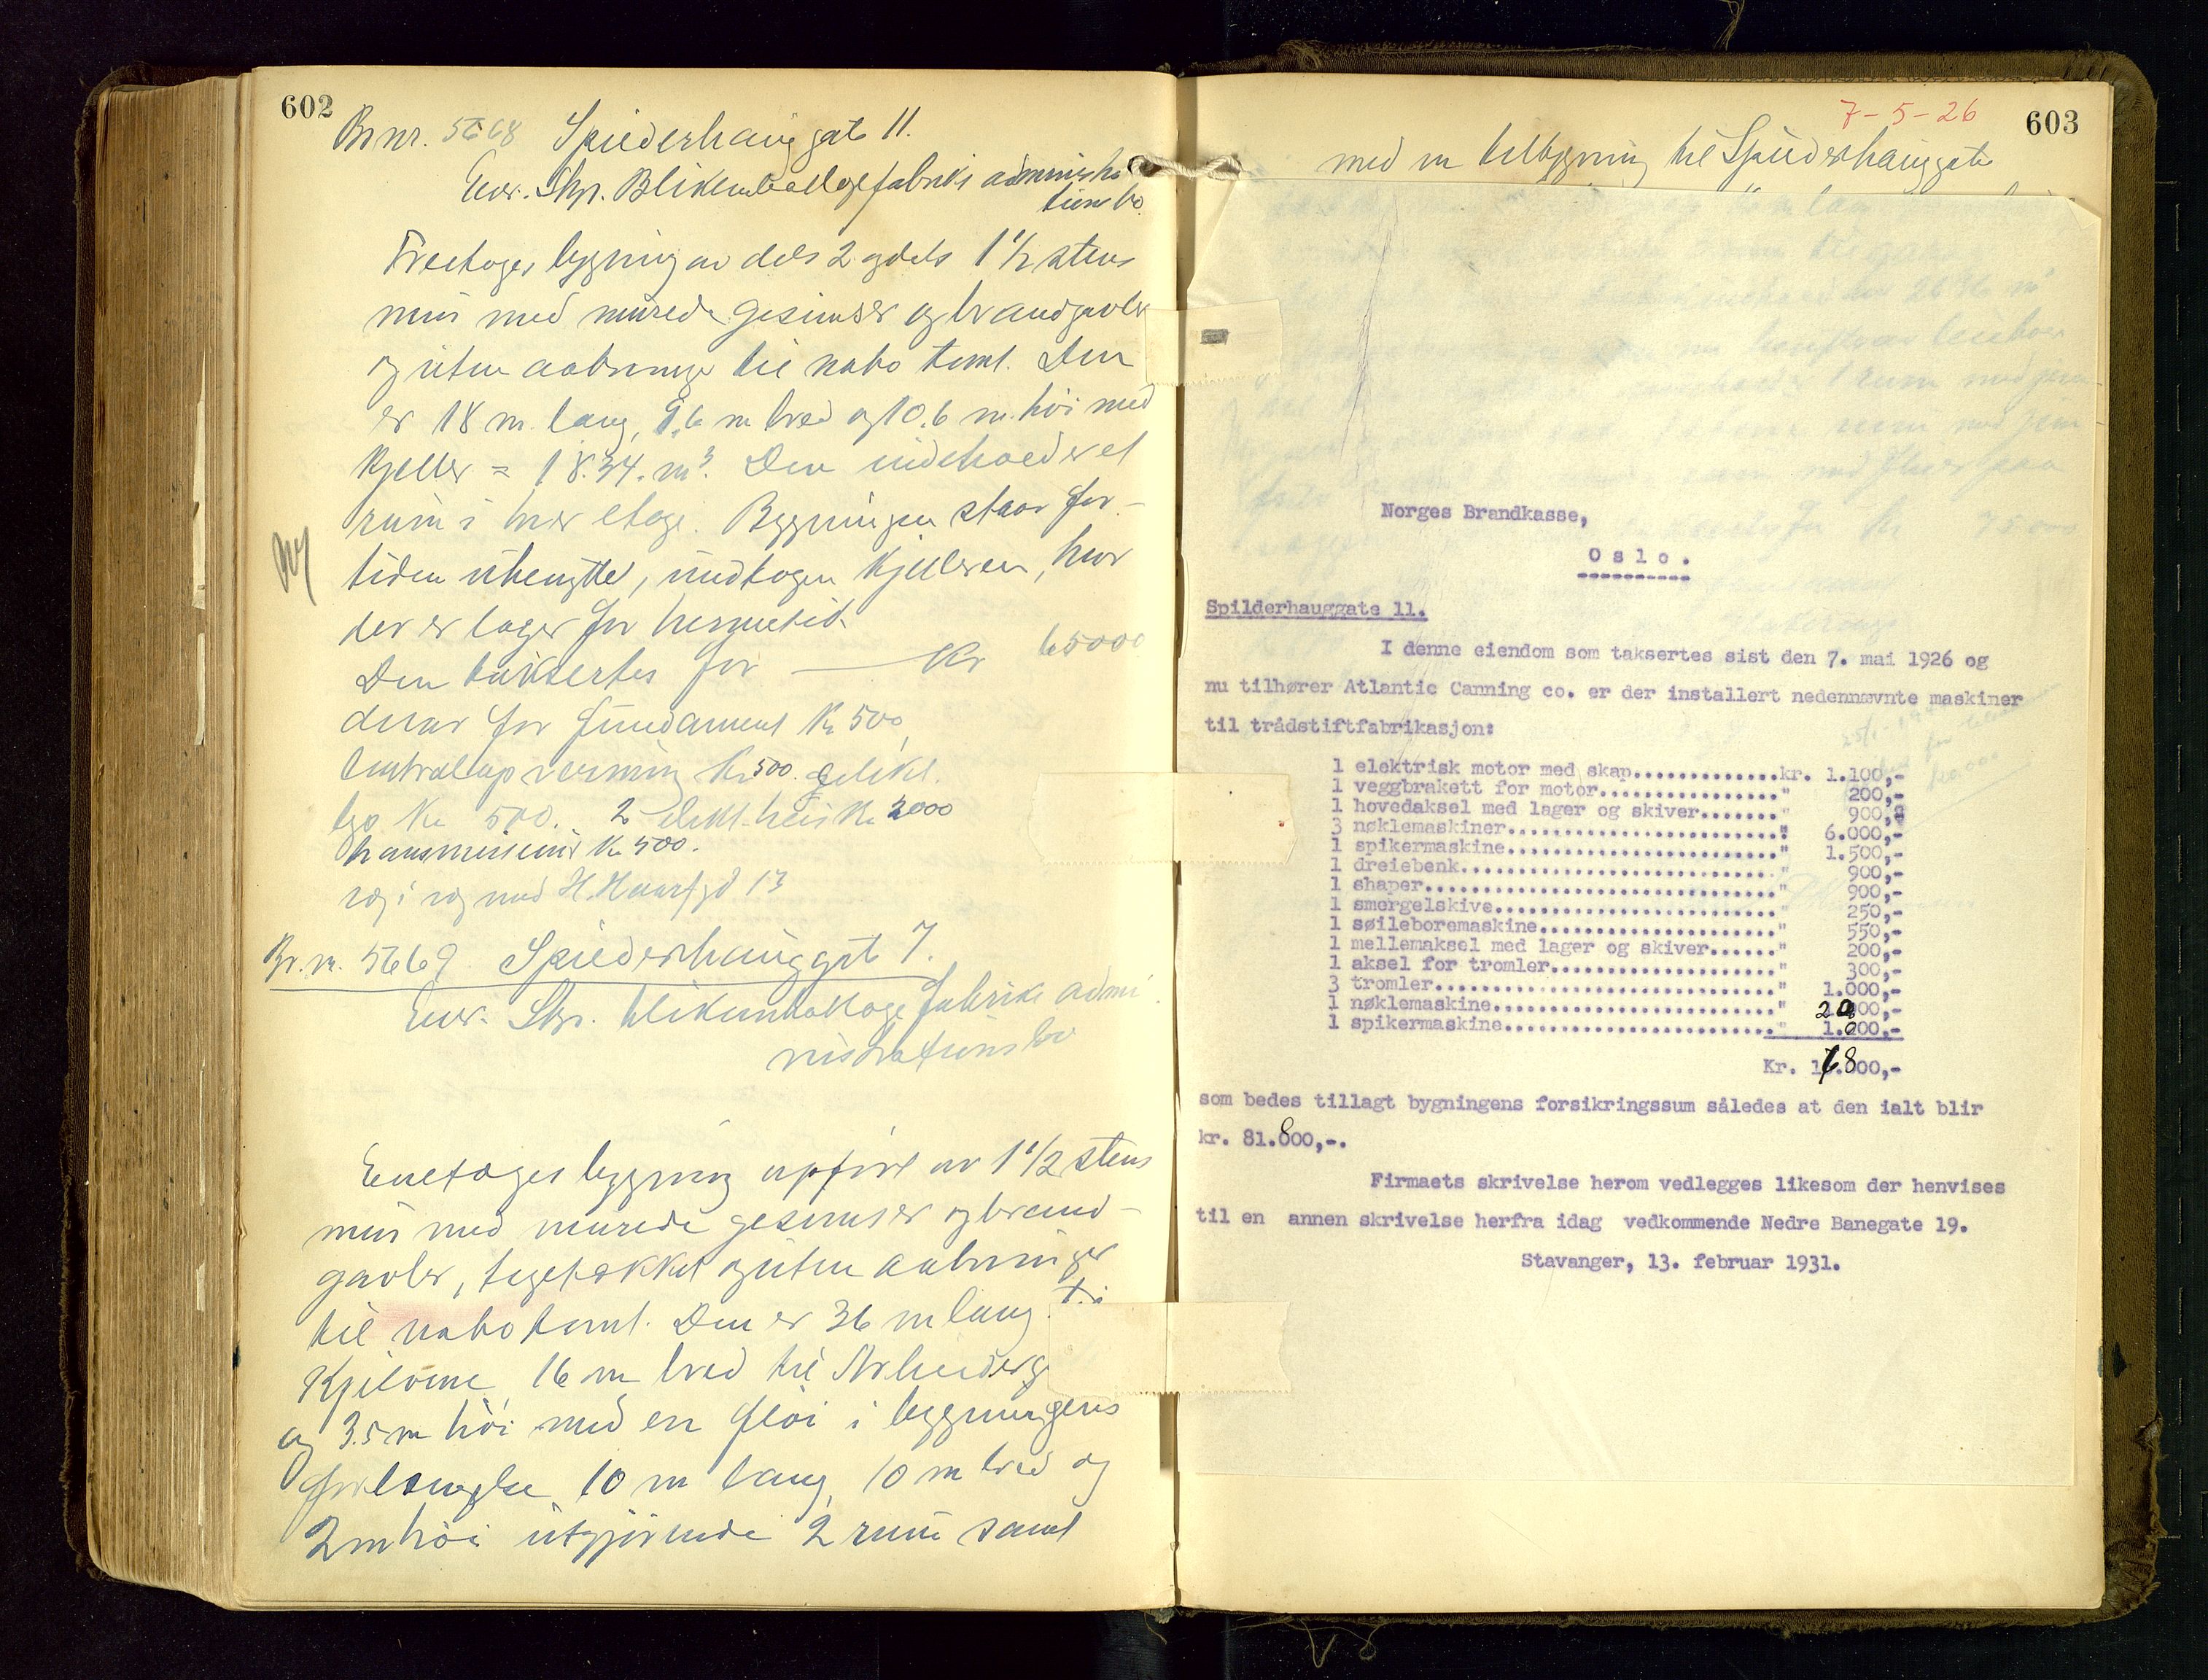 602
Br nr. 5668 Spilderhauggate 11.
Eier. Stgr. Blikemballagefabriks administra
tionsbo.
Treetages bygning av dels 2 og dels 1 1/2 stens
mur med murede gesimser og brandgavler
og uten aabninger til nabo tomt. Den
er 18 m. lang, 9.6 m bred og 10.6 m. høi med
kjeller = 1834. m³. Den indeholder et
rum i hver etage. Bygningen staar for-
tiden ubenyttet, undtagen kjelleren, hvor
der er lager for hermetik
Den taksertes for — Kr 65000
derav for fundament Kr 500,
Centralopvarming Kr 500. elekt.
lys Kr 500. 2 elekt. heis Kr 3000
transmissioner Kr 500.
væg i væg med H. Haarfgd 13
Br. nr. 5669 Spilderhauggate 7.
Eier. Stgr. blikemballage fabriks admi
nistrationsbo
Enetages bygning opført av 1 1/2 stens
mur med murede gesimser og brand-
gavler, tegltækket og uten aabninger
til nabotomt. Den er 36 m lang t. i
16 m bred til
og 3.5 m høi med en fløi i bygningens
forlængelse 10 m lang, 10 m bred og
2 m høi utgjørende 2 rum samt
7-5-26
603
med en tilbygning til Spilderhauggate
Norges Brandkasse,
Oslo.
Spilderhauggate 11.
I denne eiendom som taksertes sist den 7. mai 1926 og
nu tilhører Atlantic Canning co. er der installert nedennævnte maskiner
til trådstiftfabrikasjon:
1 elektrisk motor med skap..............kr. 1.100,-
1 veggbrakett for motor................." 200,-
1 hovedaksel med lager og skiver......." 900,-
3 nøklemaskiner........................." 6.000,-
1 spikermaskine........................." 1.500,-
1 dreiebenk............................." 900,-
1 shaper................................" 900,-
1 smergelskive.........................." 250,-
1 søileboremaskine......................" 550,-
1 mellemaksel med lager og skiver......" 200,-
1 aksel for tromler....................." 300,-
3 tromler..............................." 1.000,-
1 nøklemaskine.........................." 2000,-
1 spikermaskine........................." 1.000,-
Kr. 16.800,-
som bedes tillagt bygningens forsikringssum således at den ialt blir
kr. 81.800,-.
Firmaets skrivelse herom vedlegges likesom der henvises
til en annen skrivelse herfra idag vedkommende Nedre Banegate 19.
Stavanger, 13. februar 1931.